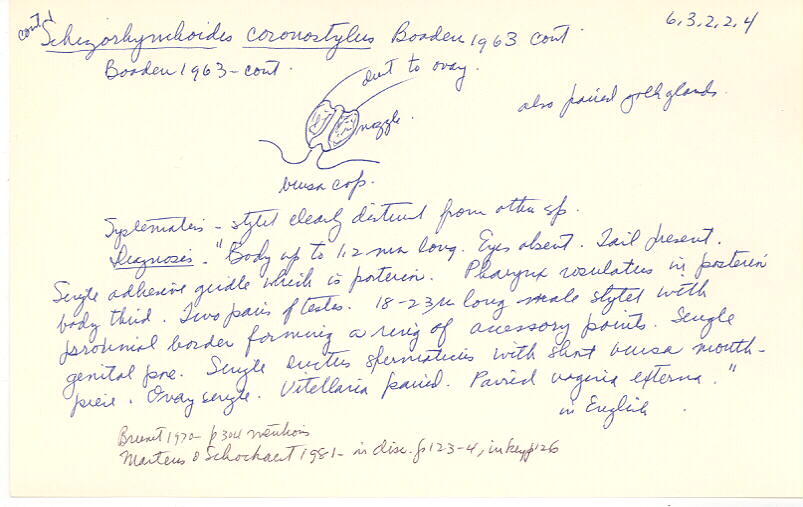 cont'd
Schizorhynchoides coronostylus Boaden 1963 cont. 6.3.2.2.4
Boaden 1963 - cont.
duct to ovary.
also paired yolk glands.
nozzle.
bursa cop.
Systematics - stylet clearly distinct from other sp.
Diagnosis. "Body up to 1.2 mm long. Eyes absent. Tail present.
Single adhesive girdle which is posterior. Pharynx rosulatus in posterior
body third. Two pairs of testes. 18-23µ long male stylet with
proximal border forming a ring of accessory points. Single
genital pore. Single ductus spermaticus with short bursa mouth-
piece. Ovary single. Vitellaria paired. Paired vagina externa."
in English.
Brunet 1970 - p 304 mentions
Martens & Schockaert 1981 - in disc. p 123-4, in key p 126